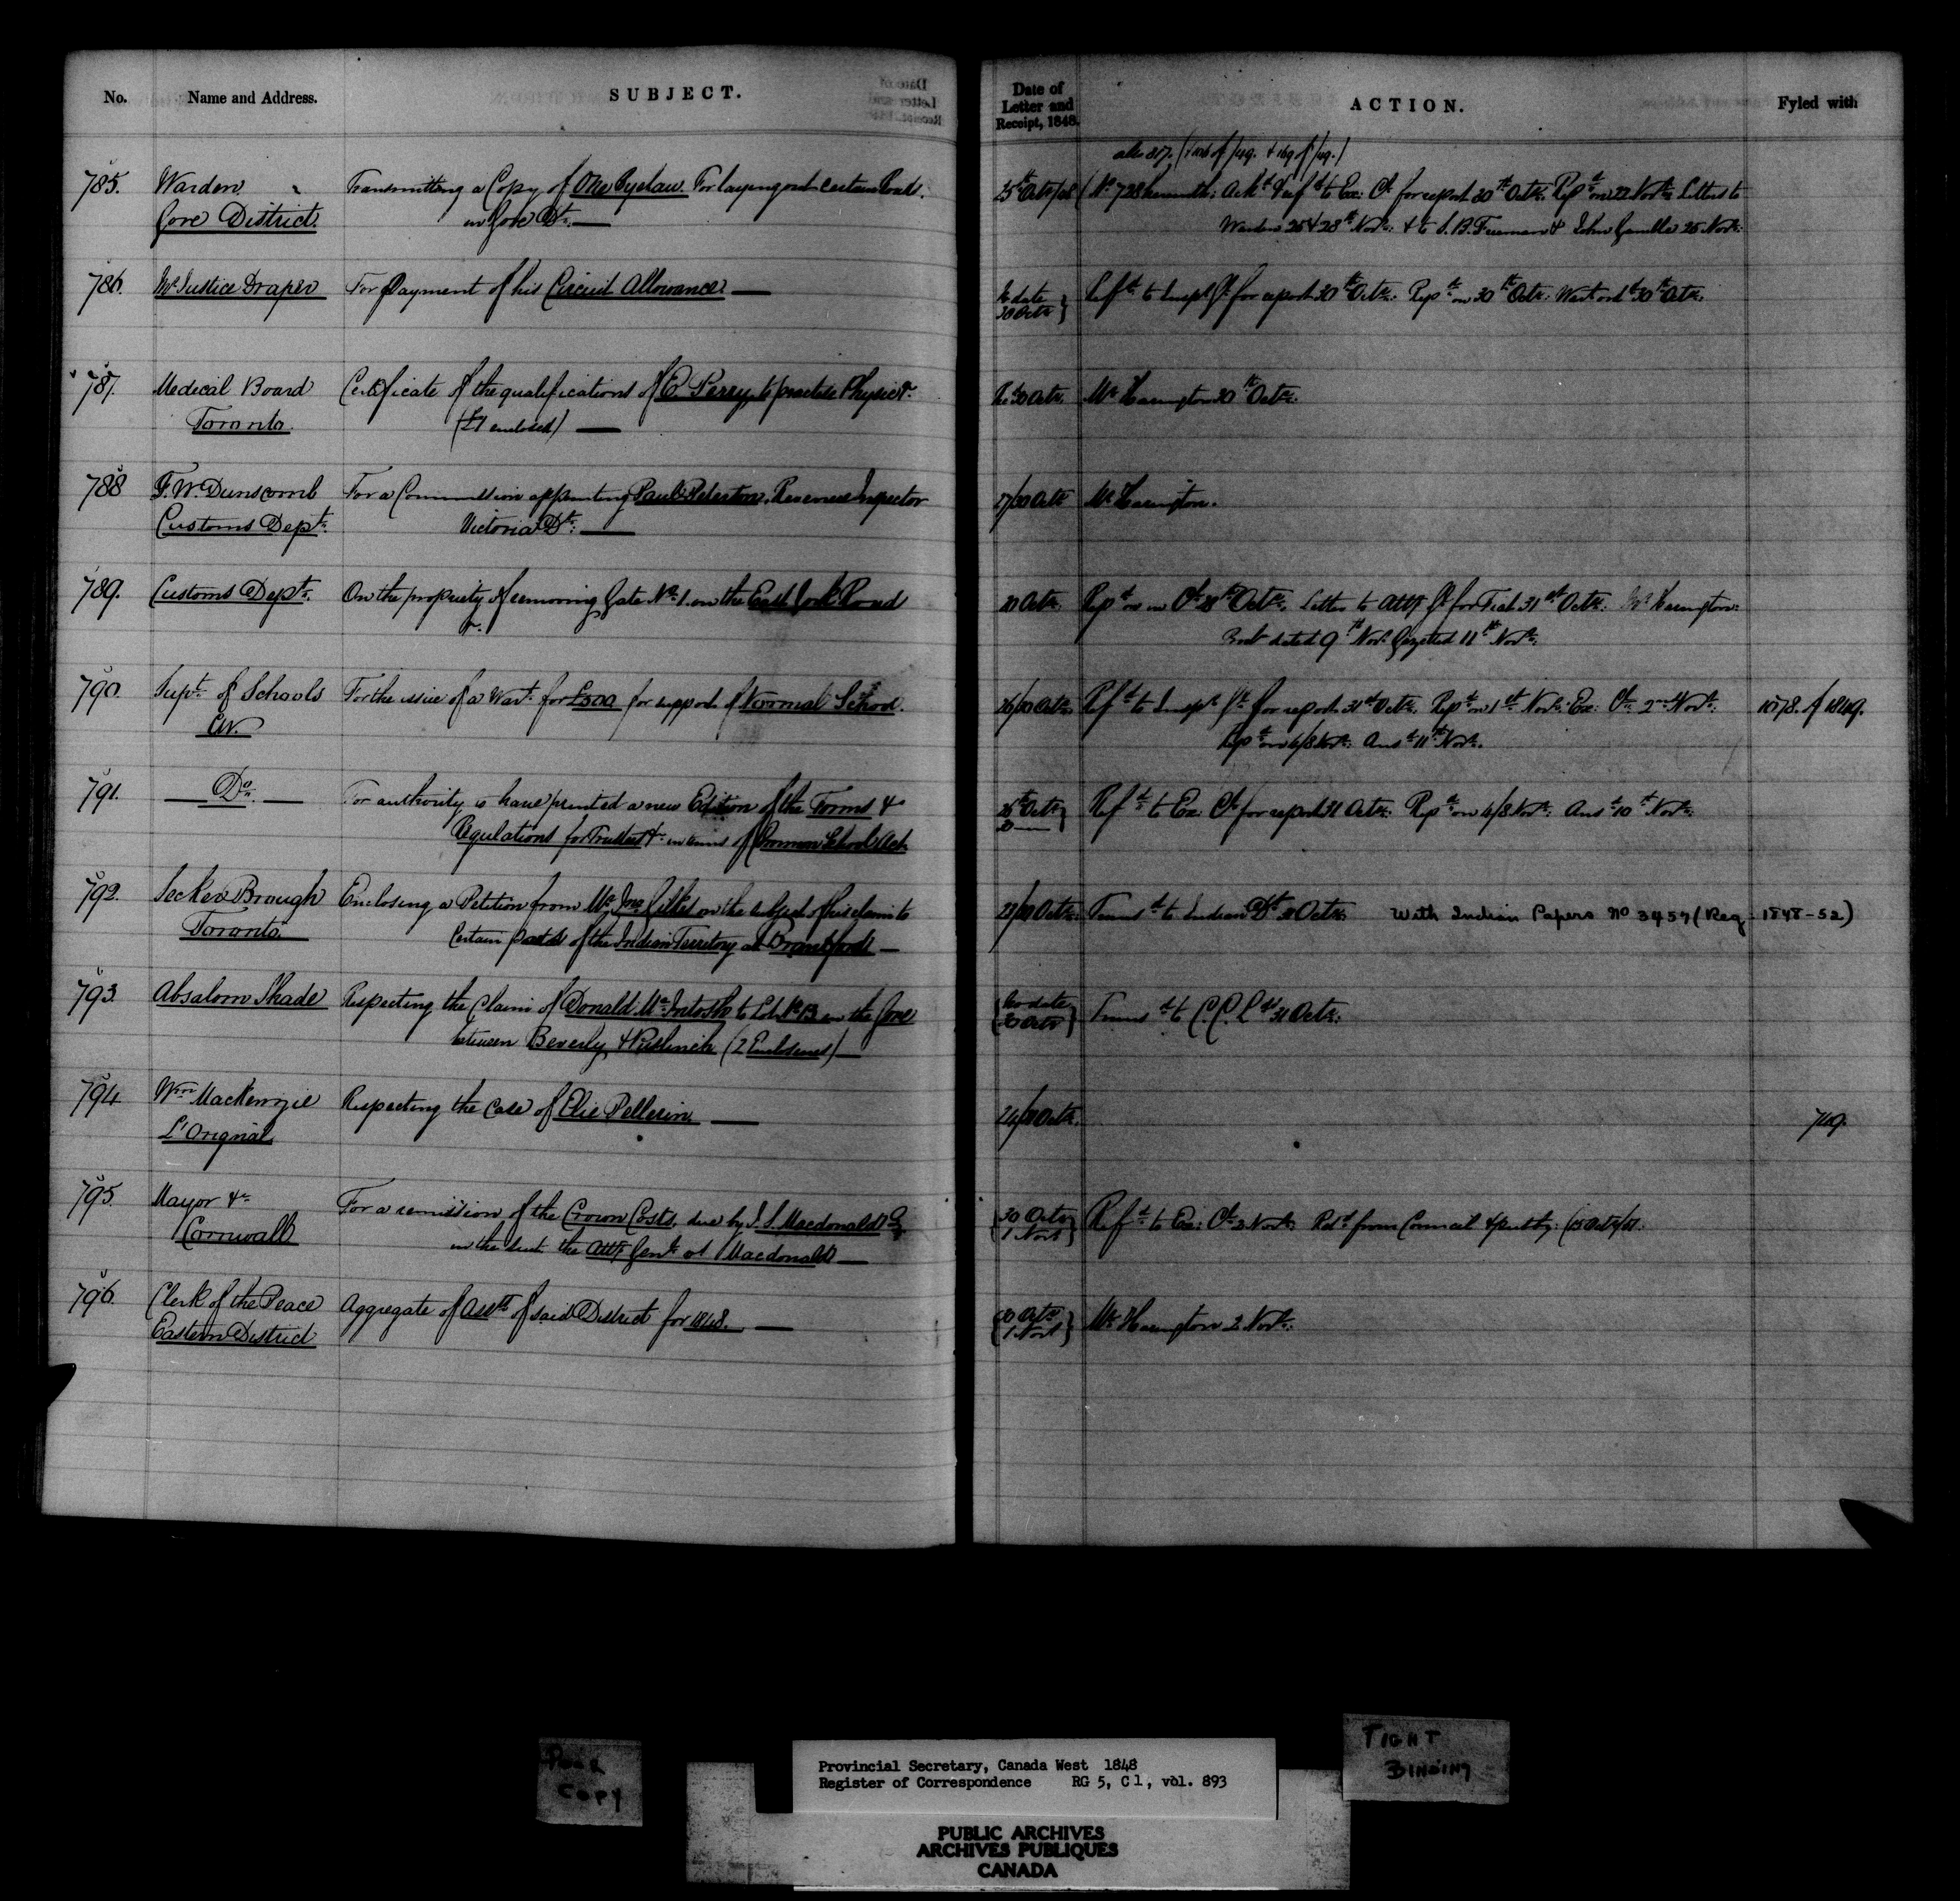 No. Name and Address. SUBJECT. Date of Letter and Receipt, 1848. ACTION. Fyled with
785. Warden Transmitting a Copy of One Byelaw For laying out certain Roads
Gore District. in Gore Dt.
25th Octr/28 (No. 728 herewith: Ackd & Refd to Ex: Cl for report 30th Octr. Repd on 22 Novr. Letters to
Warden 25 & 28th Novr. & to S. B. Freeman & John Gamble 25 Novr.
786. Mr Justice Draper For Payment of his Circuit Allowance
No date
30 Octr
Refd to Inspr Gl for report 30th Octr. Repd on 30th Octr. Wart ord 30th Octr.
787. Medical Board Certificate of the qualifications of E. Perry, to practise Physic &c
Toronto. (£1 enclosed)
Rec 30 Octr. Mr Harington 30th Octr.
788 F. W. Dunscomb For a Commission appointing Paul Peterson, Revenue Inspector
Customs Dept. Victoria Dt.
27/30 Octr Mr Harington.
789. Customs Dept. On the propriety of removing Gate No. 1. on the East York Road
&c.
Octr. Letter to Atty Gl for Fiat 31st Octr. Mr Harington
dated 9th Novr. Gazetted 11th Novr.
790. Supt. of Schools For the issue of a Wart. for £500 for support of Normal School.
CW.
26/30 Octr. Refd to Inspr Gl for report 31st Octr. Repd on 1st Novr. Ex: Cl 2nd Novr. 1078. of 1849.
Repd on 6/8 Novr. Ansd 11th Novr.
791. Do. For authority to have printed a new Edition of the Forms &
Regulations for Trustees &c in terms of Common School Act
26th Octr
30
Refd to Ex: Cl for report 31 Octr. Repd on 6/8 Novr. Ansd 10th Novr.
792. Secker Brough Enclosing a Petition from Mr Jno. on the subject of his claim to
Toronto. Certain parts of the Indian Territory at Brantford
Octr. Transd to Indian Dt Octr. With Indian Papers No 3457 (Reg 1848-52)
793. Absalom Shade Respecting the Claim of Donald McIntosh to Lot in the Gore
between Beverly & Puslinch (2 Enclosures)
(No date
30 Octr)
Transd to C.C.L. 31 Octr.
794. Wm Mackenzie Respecting the Case of Elie Pellerin
L'Orignal
24/30 Octr. 719.
795. Mayor &c For a remission of the Crown Costs, due by J. S. Macdonald
Cornwall in the suit the Atty Genl vs Macdonald
30 Octr
1 Novr
Refd to Ex: Cl 2 Novr. Retd from Council
796. Clerk of the Peace Aggregate of Asst of said District for 1848.
Eastern District
30 Octr
1 Novr
Mr Harington 2 Novr.
POOR
COPY
Provincial Secretary, Canada West 1848
Register of Correspondence RG 5, C 1, vol. 893
TIGHT
BINDING
PUBLIC ARCHIVES
ARCHIVES PUBLIQUES
CANADA